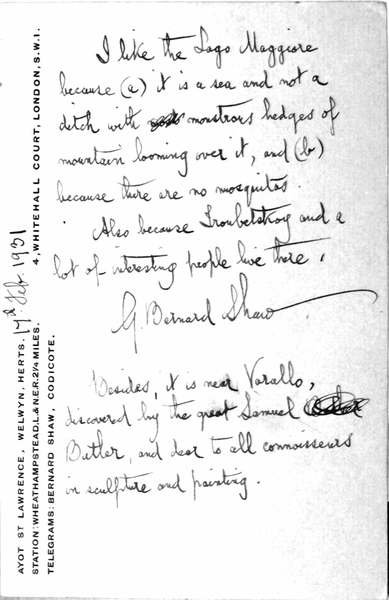 4, WHITEHALL COURT, LONDON, S.W.1.
AYOT ST LAWRENCE, WELWYN, HERTS. 17th Feb. 1931
STATION: WHEATHAMPSTEAD, L.& N.E.R. 2¼ MILES.
TELEGRAMS: BERNARD SHAW, CODICOTE.
I like the Lago Maggiore
because (a) it is a sea and not a
ditch with monstrous hedges of
mountain looming over it, and (b)
because there are no mosquitos.
Also because Troubetskoy and a
lot of interesting people live there.
G. Bernard Shaw
Besides, it is near Varallo,
discovered by the great Samuel
Butler, and dear to all connoisseurs
in sculpture and painting.